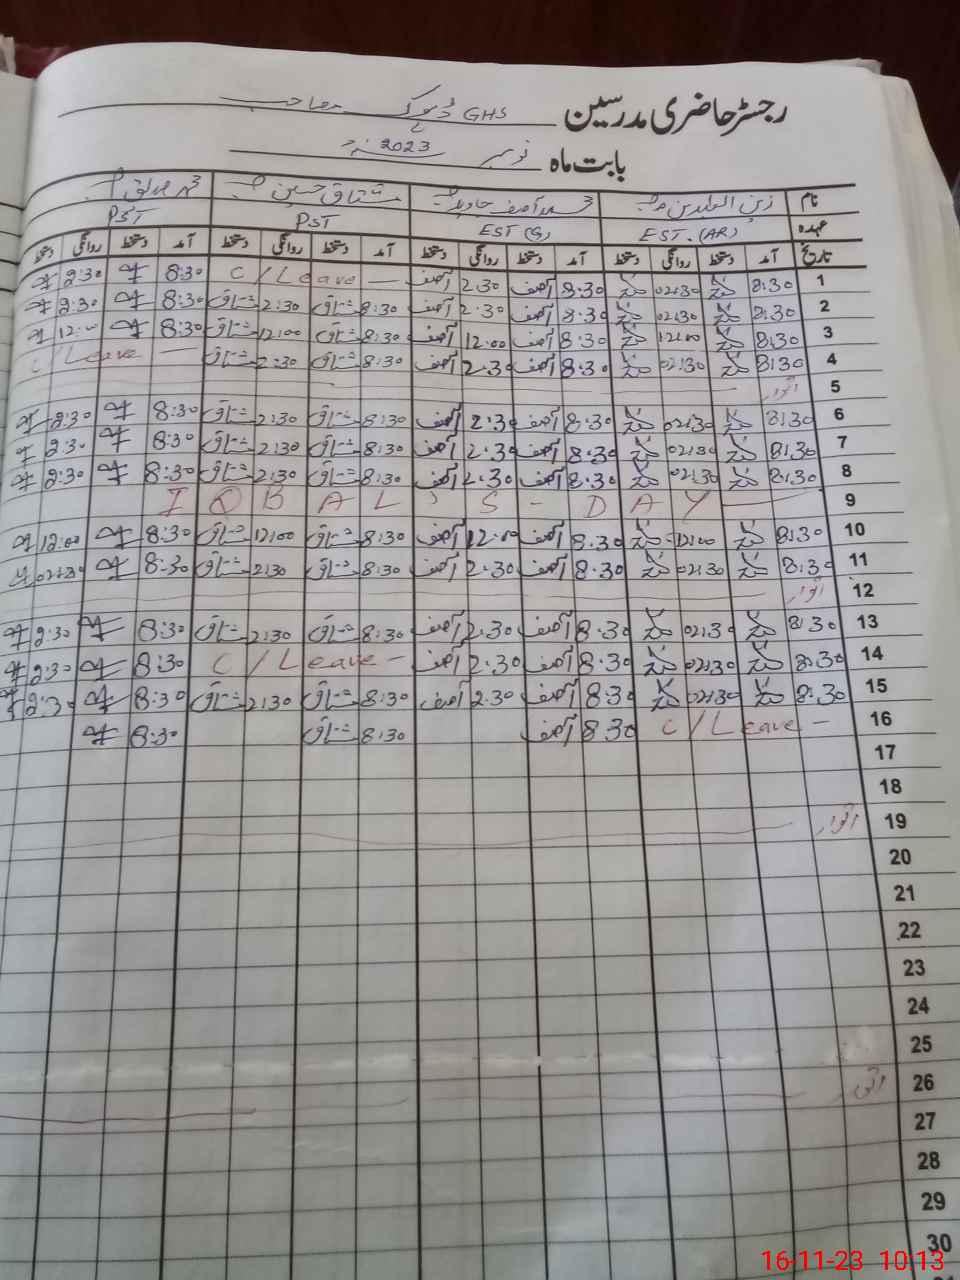 رجسٹر حاضری مدرسین GHS ڈھوک صاحب
بابت ماہ نومبر 2023
نام زین العابدین محمد آصف جاوید مشتاق حسین محمد صدیق
عہدہ EST.(AR) EST (G) PST PST
تاریخ آمد دستخط روانگی دستخط آمد دستخط روانگی دستخط آمد دستخط روانگی دستخط آمد دستخط روانگی دستخط
1 8:30 02:30 8:30 آصف 2:30 آصف C/Leave 8:30 2:30
2 8:30 02:30 8:30 آصف 2:30 آصف 8:30 مشتاق 2:30 مشتاق 8:30 2:30
3 8:30 12:00 8:30 آصف 12:00 آصف 8:30 مشتاق 12:00 مشتاق 8:30 12:00
4 8:30 02:30 8:30 آصف 2:30 آصف 8:30 مشتاق 2:30 مشتاق C/Leave
5 اتوار
6 8:30 02:30 8:30 آصف 2:30 آصف 8:30 مشتاق 2:30 مشتاق 8:30 2:30
7 8:30 02:30 8:30 آصف 2:30 آصف 8:30 مشتاق 2:30 مشتاق 8:30 2:30
8 8:30 02:30 8:30 آصف 2:30 آصف 8:30 مشتاق 2:30 مشتاق 8:30 2:30
9 IQBAL'S - DAY
10 8:30 12:00 8:30 آصف 12:00 آصف 8:30 مشتاق 12:00 مشتاق 8:30 12:00
11 8:30 02:30 8:30 آصف 2:30 آصف 8:30 مشتاق 2:30 مشتاق 8:30 02:30
12 اتوار
13 8:30 02:30 8:30 آصف 2:30 آصف 8:30 مشتاق 2:30 مشتاق 8:30 2:30
14 8:30 02:30 8:30 آصف 2:30 آصف C/Leave 8:30 2:30
15 8:30 02:30 8:30 آصف 2:30 آصف 8:30 مشتاق 2:30 مشتاق 8:30 2:30
16 C/Leave 8:30 آصف 8:30 مشتاق 8:30
17
18
19 اتوار
20
21
22
23
24
25
26 اتوار
27
28
29
30
16-11-23 10:13